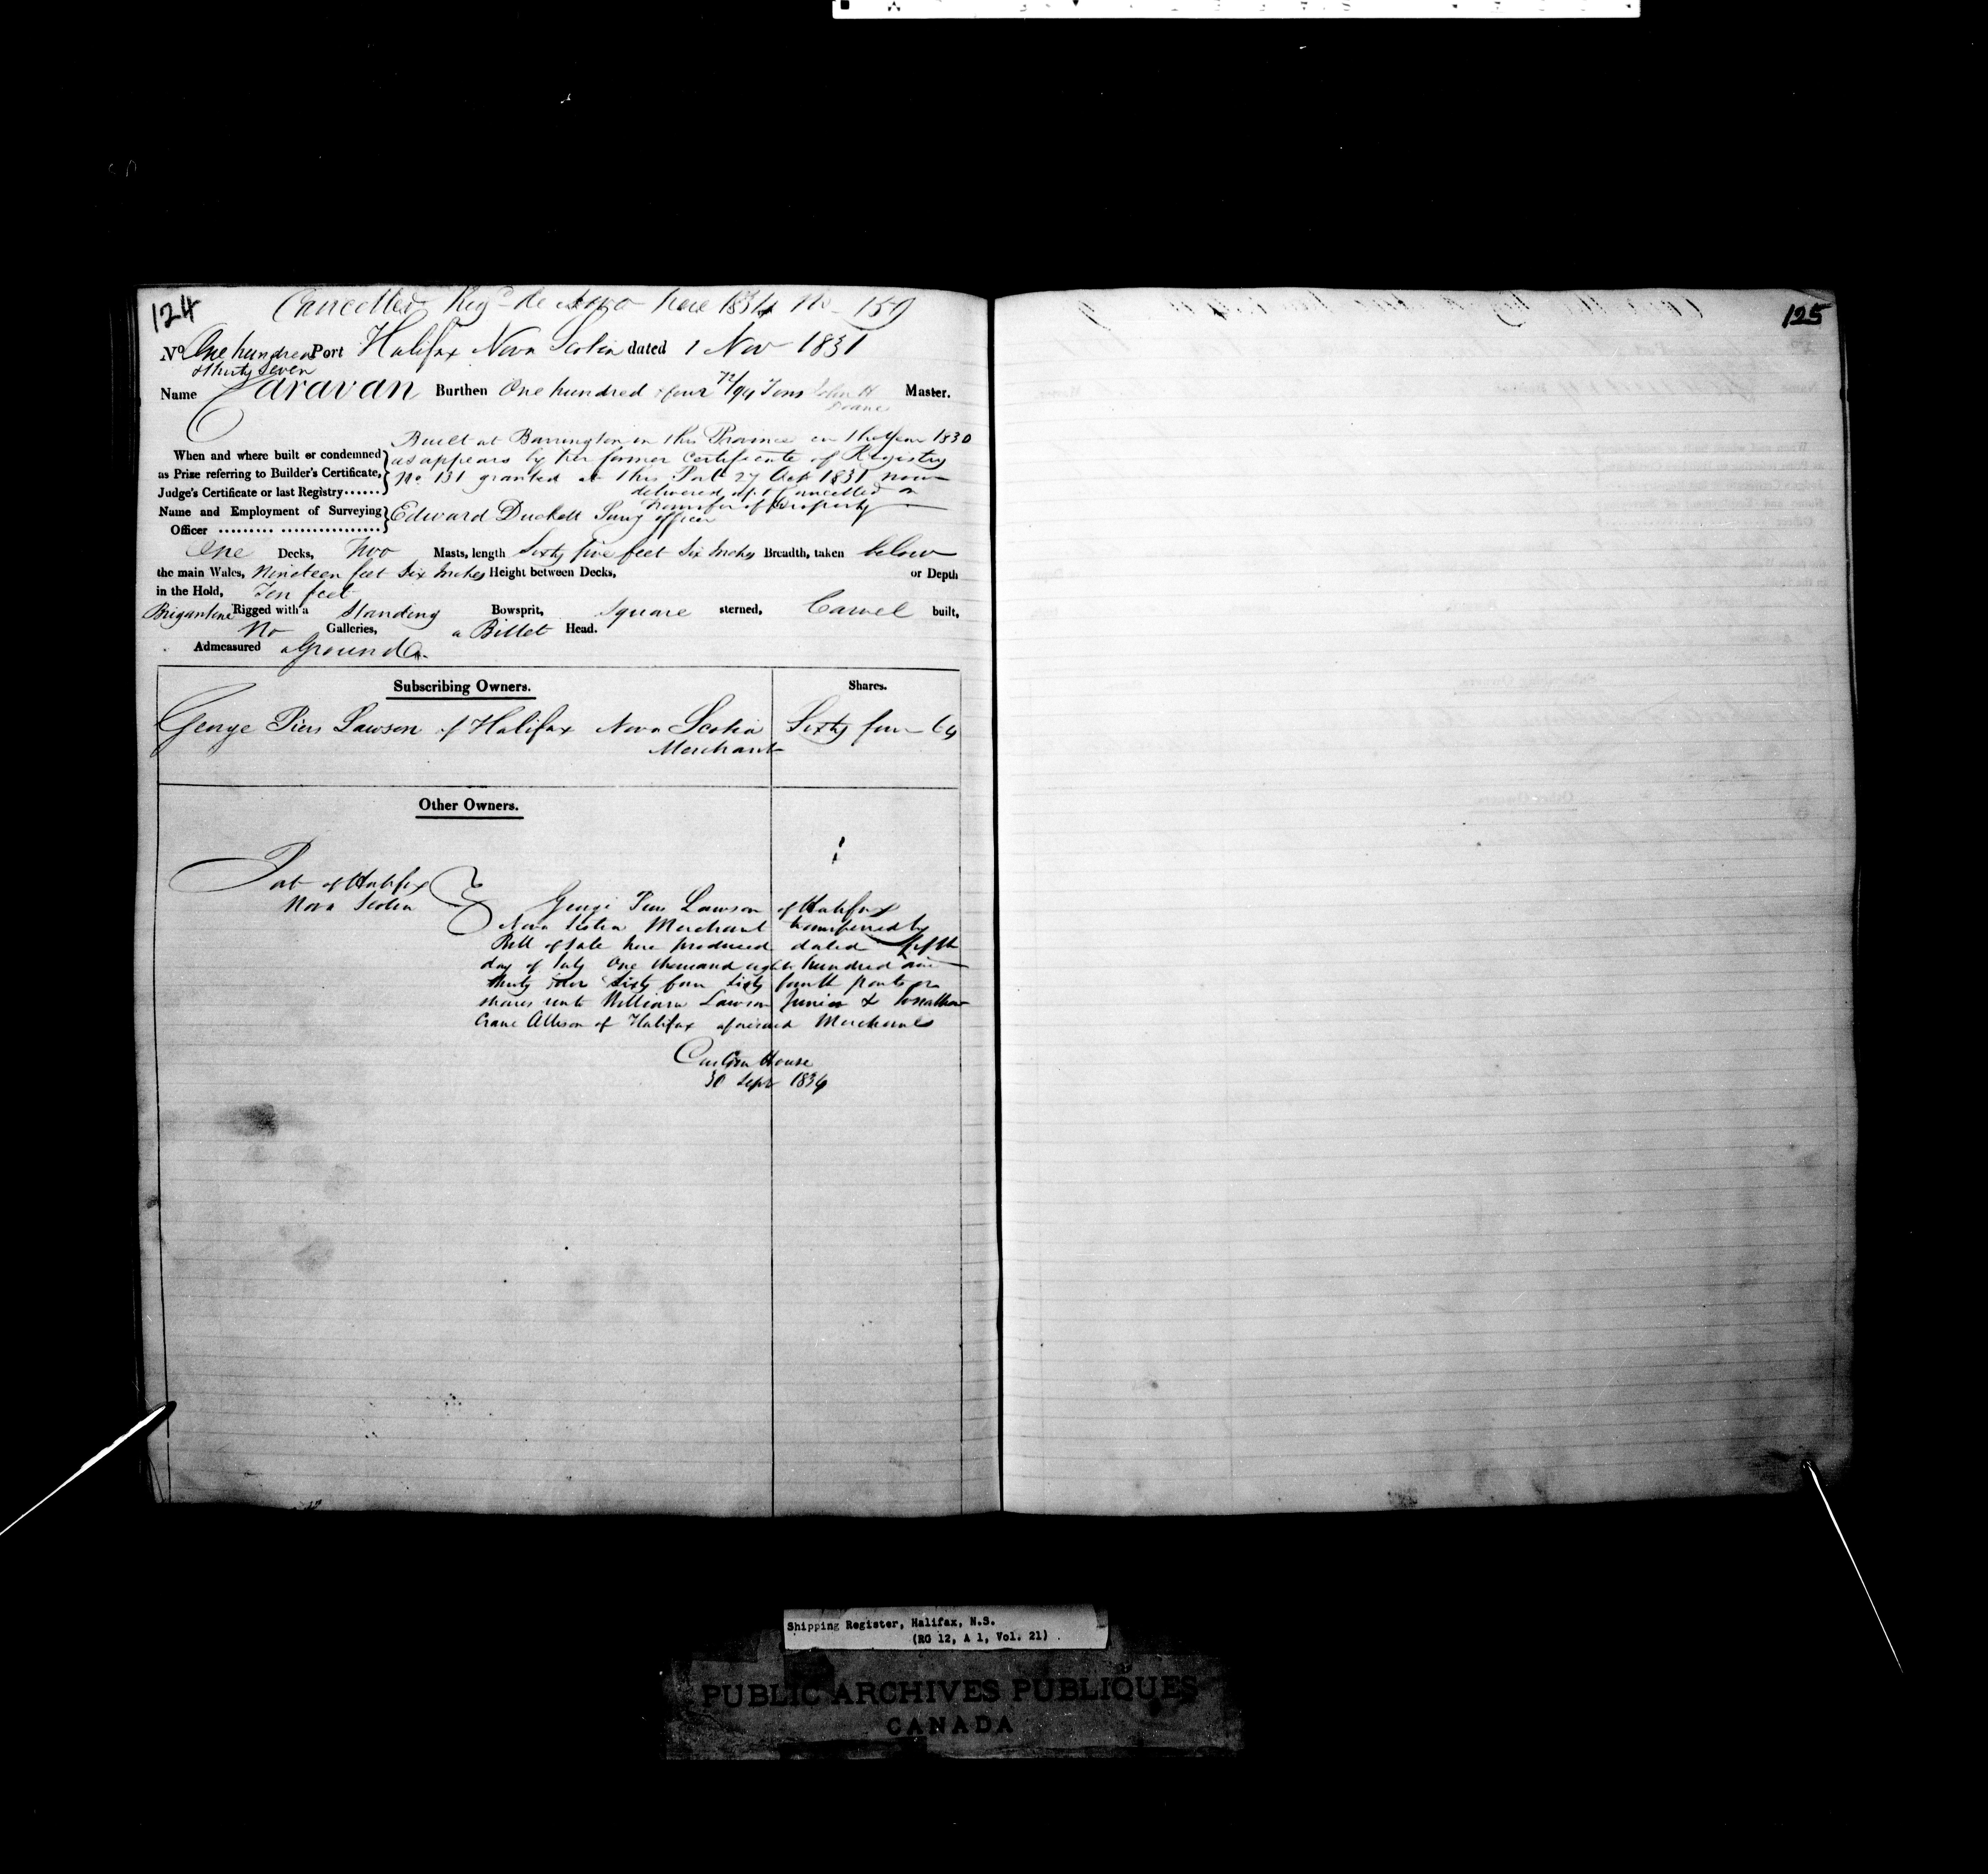 124
Cancelled Regd de novo here 1834 No 159
No One hundred Port Halifax Nova Scotia dated 1 Nov 1831
& thirty seven
Name Caravan Burthen One hundred & four 72/94 Tons John H Master.
Doane
Built at Barrington in this Province in the Year 1830
When and where built or condemned as appears by her former Certificate of Registry
as Prize referring to Builder's Certificate, No 131 granted at this Port 27 Oct 1831 now
Judge's Certificate or last Registry...... delivered up & Cancelled on
Transfer of Property
Name and Employment of Surveying Edward Duckett Survg officer
Officer ......... ................
One Decks, Two Masts, length Sixty five feet Six Inches Breadth, taken below
the main Wales, Nineteen feet Six Inches Height between Decks, or Depth
in the Hold, Ten feet
Brigantine Rigged with a Standing Bowsprit, Square sterned, Carvel built,
No Galleries, a Billet Head.
Admeasured aground
Subscribing Owners. Shares.
George Piers Lawson of Halifax Nova Scotia Sixty four 64
Merchant
Other Owners.
Port of Halifax
Nova Scotia
George Piers Lawson of Halifax
Nova Scotia Merchant transferred by
Bill of Sale here produced dated fifth
day of July One thousand eight hundred and
thirty four Sixty four Sixty fourth parts or
shares unto William Lawson Junior & Jonathan
Crane Allison of Halifax aforesaid Merchants
Custom House
30 Sepr 1834
125
Shipping Register, Halifax, N.S.
(RG 12, A 1, Vol. 21)
PUBLIC ARCHIVES PUBLIQUES
CANADA